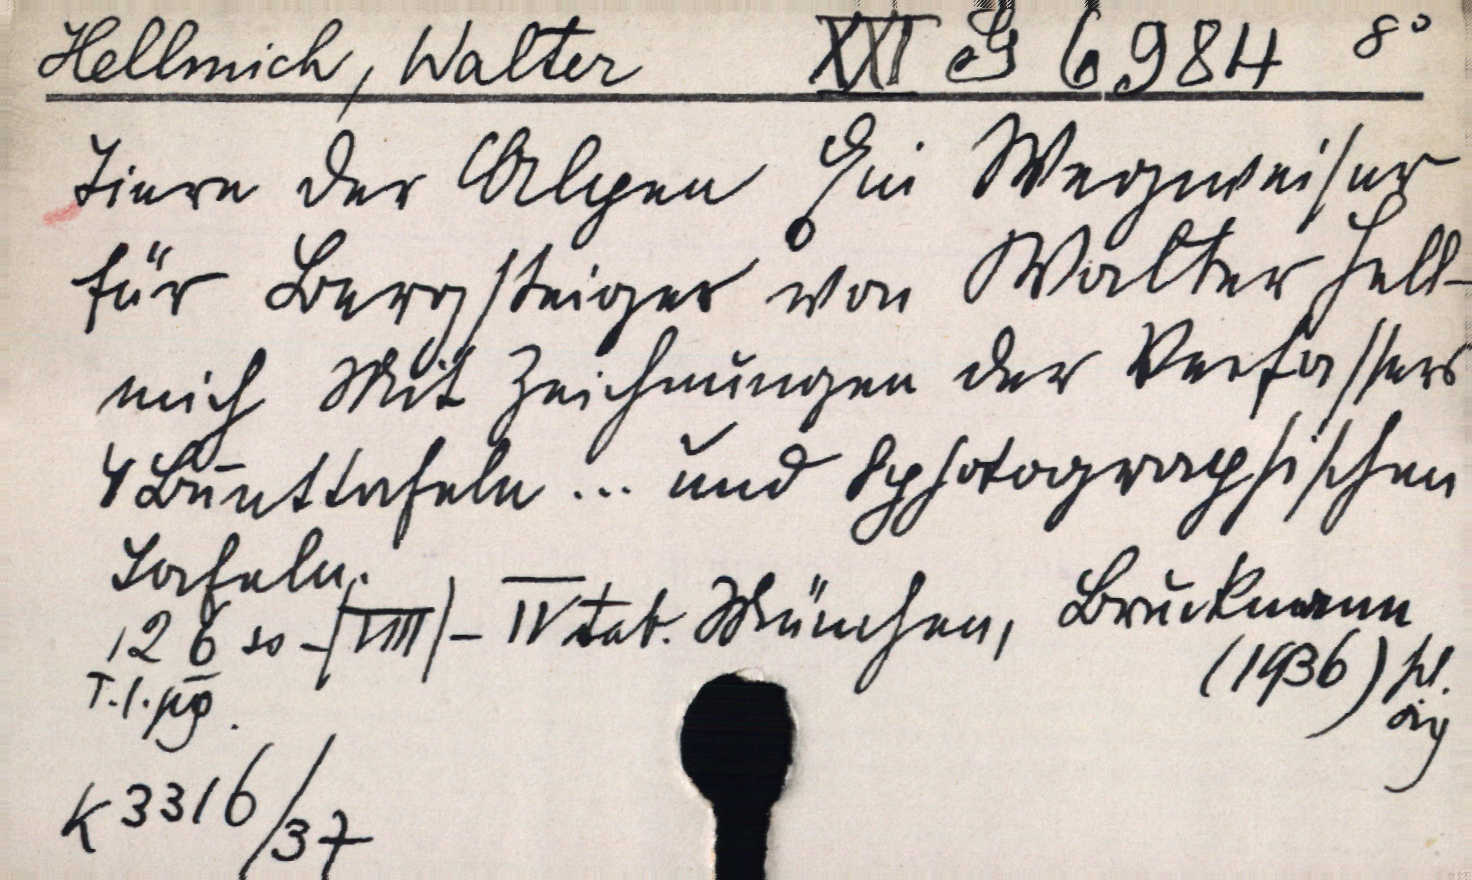 Hellmich, Walter XXI G 6984 8°
Tiere der Alpen Ein Wegweiser
für Bergsteiger von Walter Hell-
mich Mit Zeichnungen der Verfassers
4 Bunttafeln ... und 8 photographischen
Tafeln.
126 so - [VIII] - IV tab. München, Bruckmann
(1936) pl.
T. l. pg. org
K 3316/37